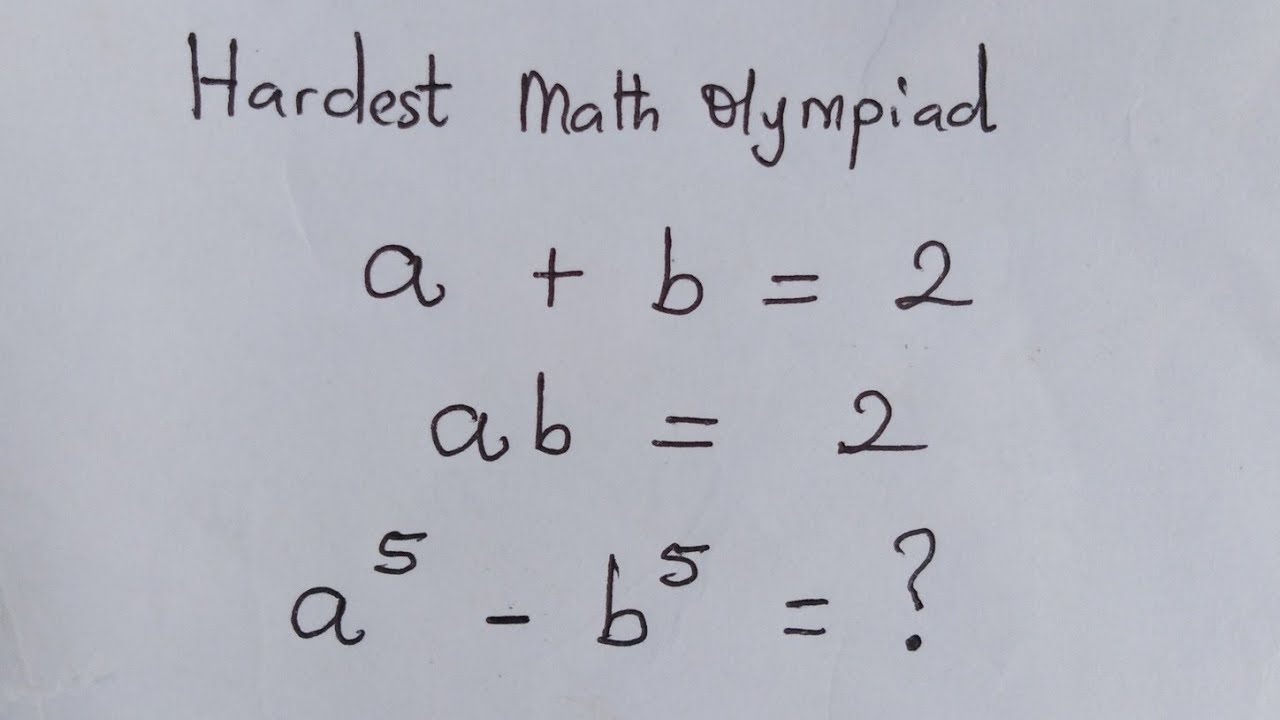 Hardest Math Olympiad
a + b = 2
ab = 2
a⁵ - b⁵ = ?